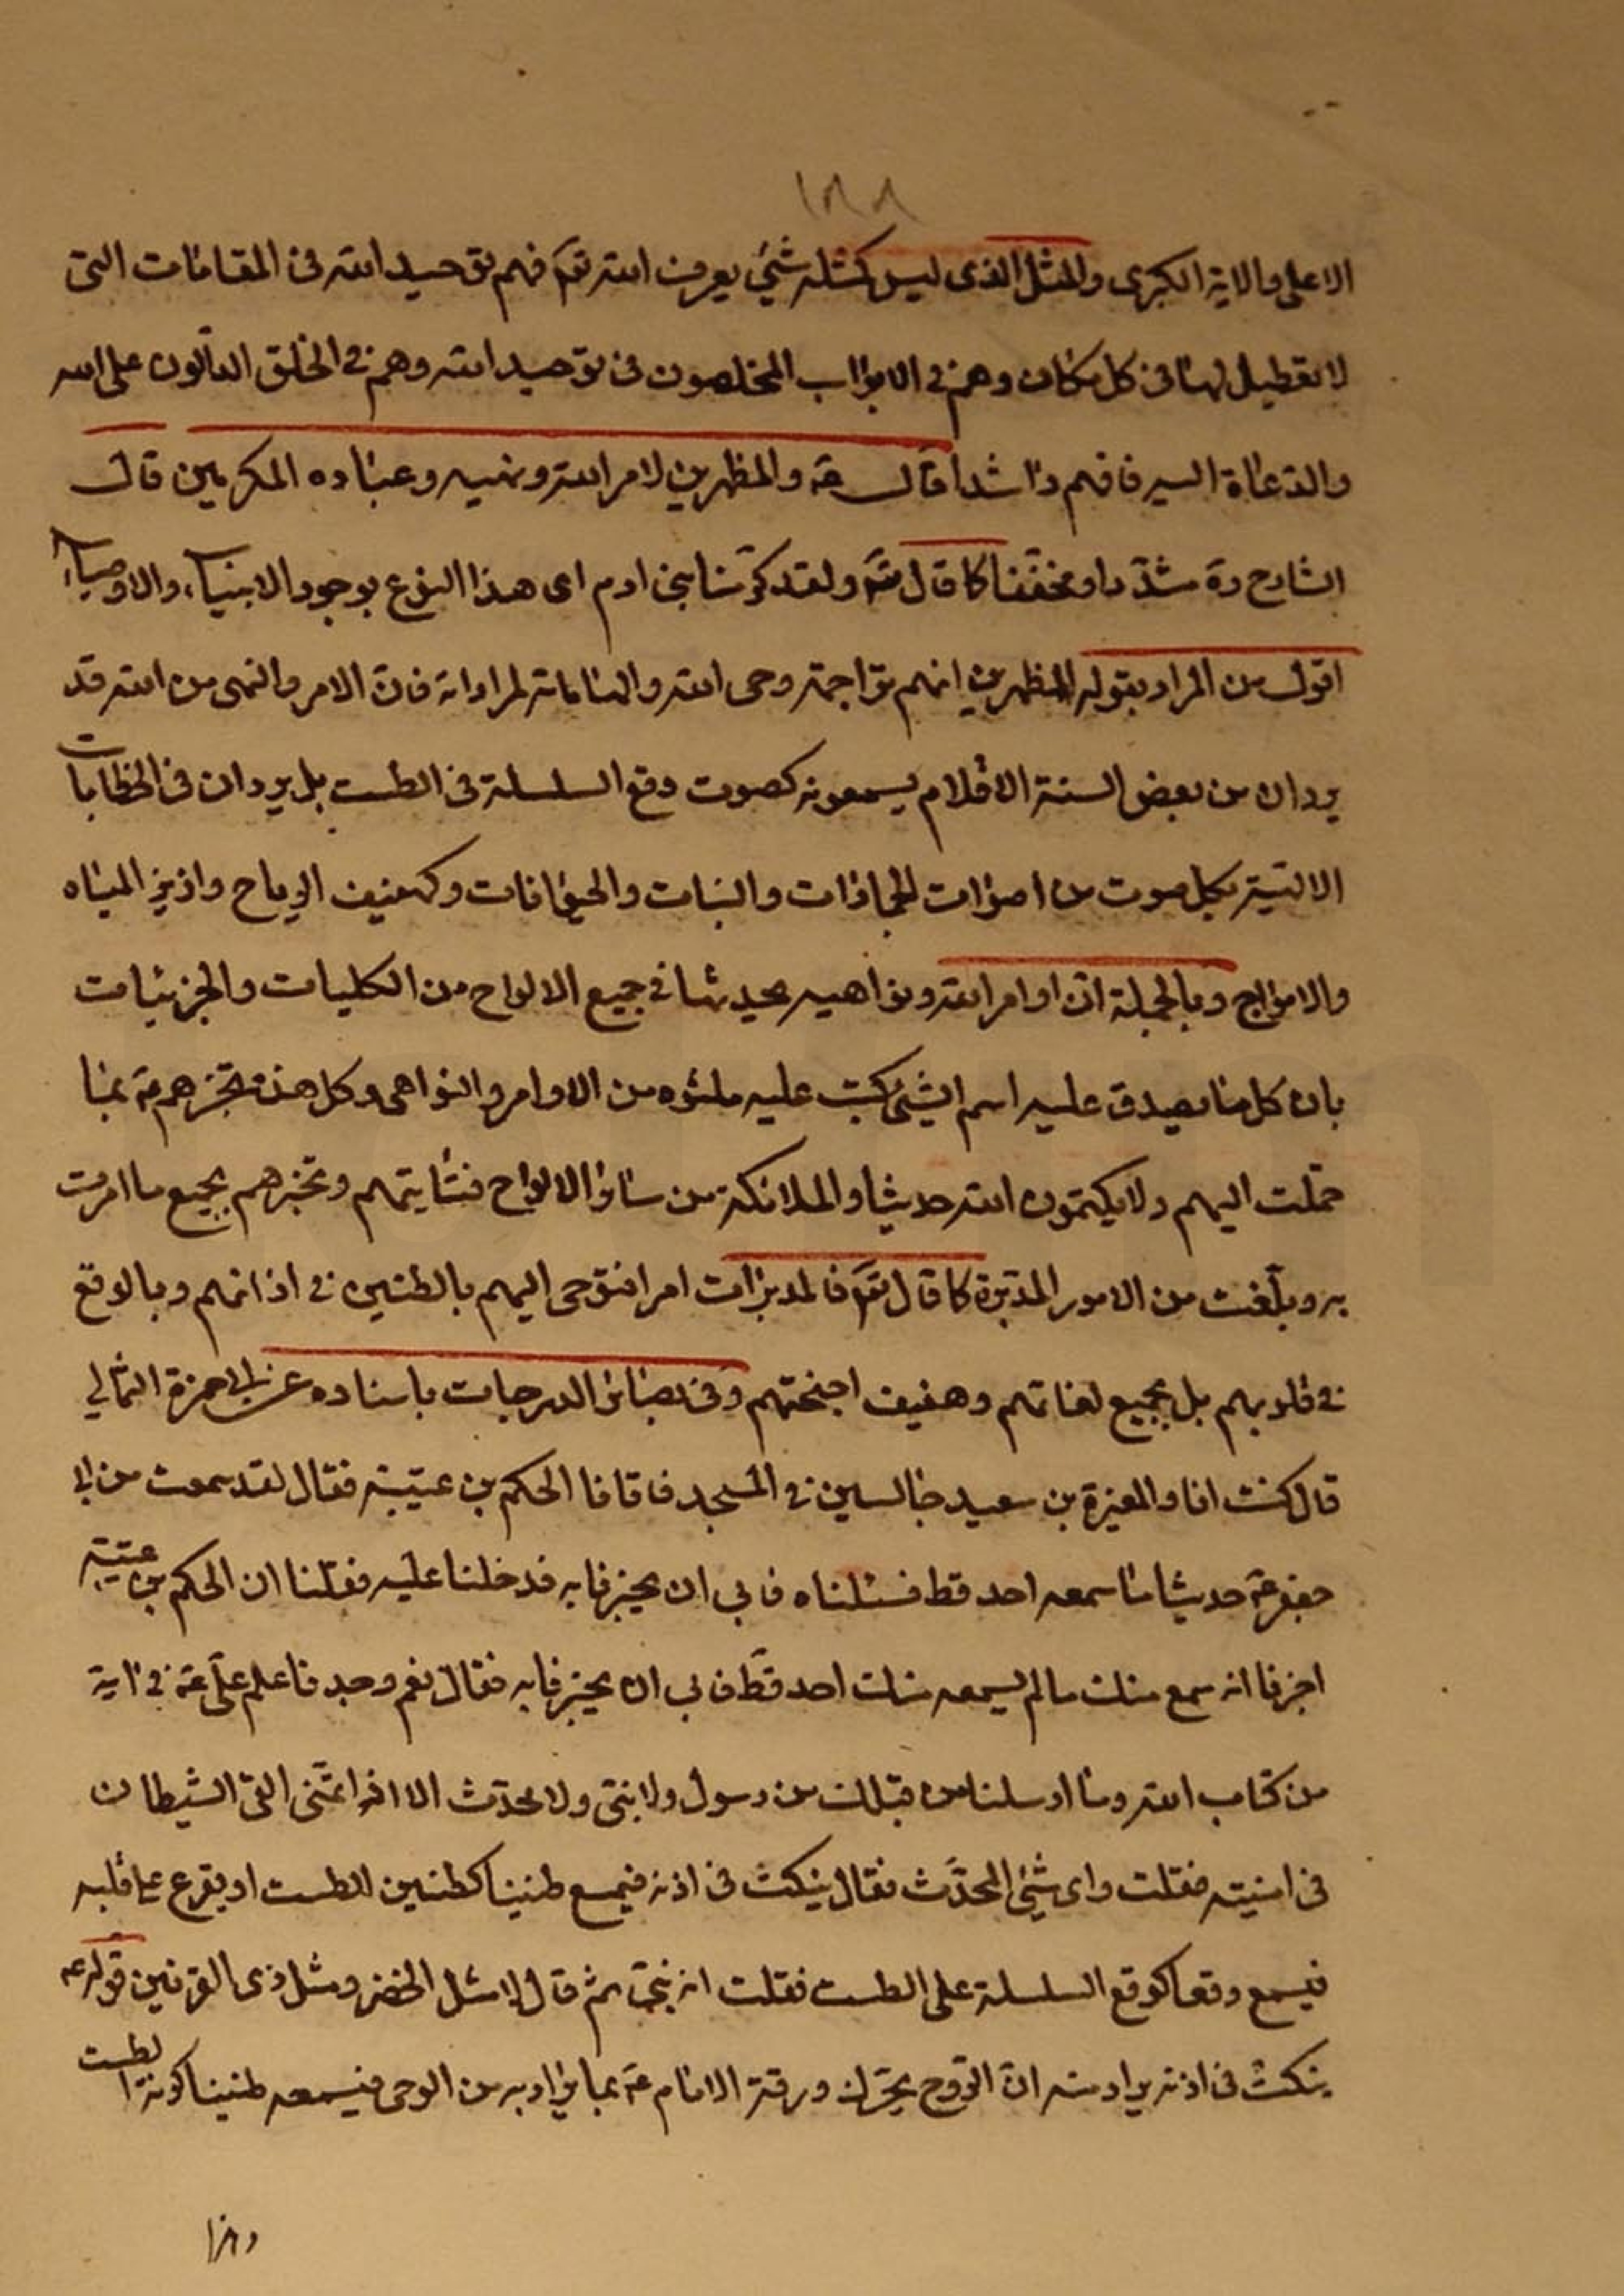 ١٨٨
الاعلى والاية الكبرى والمثل الذى ليس كمثله شئ يعرف الله تعۤ فهم توحيد الله فى المقامات التى
لا تعطيل لها فى كل مكان وهم فى الابواب المخلصون فى توحيد الله وهم فى الخلق الدالون على الله
والدعاة اليه فافهم راشدا قال عۤ والمظهرين لامر الله ونهيه وعباده المكرمين قال
الشارح رۤه مشدّدا ومخففا كما قال تعۤ ولقد كرّمنا بنى ادم اى هذا النوع بوجود الانبياء والاوصياء
اقول من المراد بقوله المظهرين انهم تراجمة وحى الله والهاماته لمراداته فانّ الامر والنهى من الله قد
يردان من بعض السنة الاقلام يسمعونه كصوت وقع السلسلة فى الطست بل يردان فى الخطابات
الالهية بكل صوت من اصوات الجمادات والنبات والحيوانات وكهفيف الرياح واذيز المياه
والامواج وبالجملة انّ اوامر الله ونواهيه يجدونها فى جميع الالواح من الكليات والجزئيات
بان كل ما يصدق عليه اسم الشئ كتب عليه ملئوه من الاوامر والنواهى وكل هذه تخبرهم عۤ بما
حمّلت اليهم ولا يكتمون الله حديثا والملائكة من سائر الالواح فتأتيهم وتخبرهم بجميع ما امرت
به وبلّغت من الامور المدبّرة كما قال تعۤ فالمدبرات امرا فتوحى اليهم بالطنين فى اذانهم وبالوقع
فى قلوبهم بل بجميع لغاتهم وهفيف اجنحتهم وفى بصائر الدرجات باسناده عن ابى حمزة الثمالي
قال كنت انا والمغيرة بن سعيد جالسين فى المسجد فاتانا الحكم بن عتيبة فقال لقد سمعت من ابى
جعفر عۤ حديثا ما سمعه احد قط فسئلناه فابى ان يخبرنا به فدخلنا عليه فقلنا ان الحكم بن عتيبة
اخبرنا انه سمع منك ما لم يسمعه منك احد قطّ فابى ان يخبرنا به فقال نعم وجدنا علم علىّ عۤ فى اية
من كتاب الله وما ارسلنا من قبلك من رسول ولا نبىّ ولا محدّث الا اذا تمنّى القى الشيطان
فى امنيته فقلت واى شئ المحدّث فقال ينكت فى اذنه فيسمع طنينا كطنين الطست او يقرع على قلبه
فيسمع وقعا كوقع السلسلة على الطست فقلت انه نبىّ ثم قال لا مثل الخضر ومثل ذى القرنين قوله عۤ
ينكت فى اذنه يراد منه انّ الرّوح يحرّك ورقة الامام عۤ بما يراد به من الوحى فيسمعه طنينا كرنة الطست